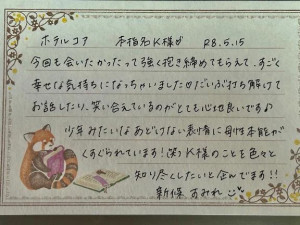 ホテルコア 本指名K様が R8.5.15
今回も会いたかったって強く抱き締めてもらえて、すごく
幸せな気持ちになっちゃいました だいぶ打ち解けて
お話したり、笑い合えているのがとても心地良いです♪
少年みたいなあどけない表情に母性本能が
くすぐられています！笑 K様のことを色々と
知り尽くしたいと企んでます！！
新保 すみれ